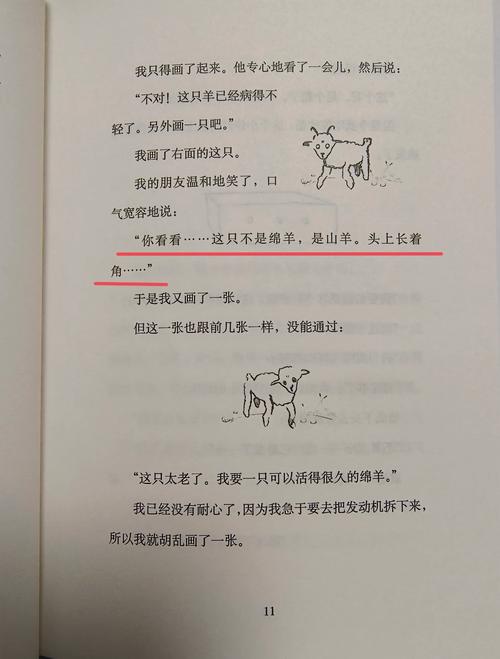 我只得画了起来。他专心地看了一会儿，然后说：
“不对！这只羊已经病得不
轻了。另外画一只吧。”
我画了右面的这只。
我的朋友温和地笑了，口
气宽容地说：
“你看看……这只不是绵羊，是山羊。头上长着
角……”
于是我又画了一张。
但这一张也跟前几张一样，没能通过：
“这只太老了。我要一只可以活得很久的绵羊。”
我已经没有耐心了，因为我急于要去把发动机拆下来，
所以我就胡乱画了一张。
11